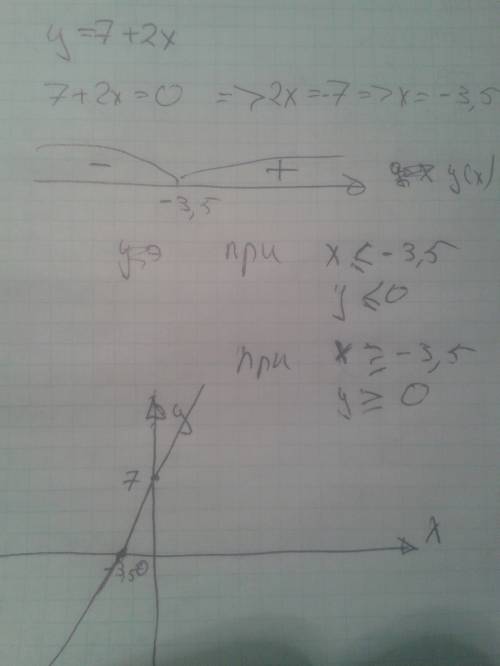 y = 7 + 2x
7 + 2x = 0 => 2x = -7 => x = -3,5
- + y(x)
-3,5
при x ≤ -3,5
y ≤ 0
при x ≥ -3,5
y ≥ 0
y
7
x
-3,5 0